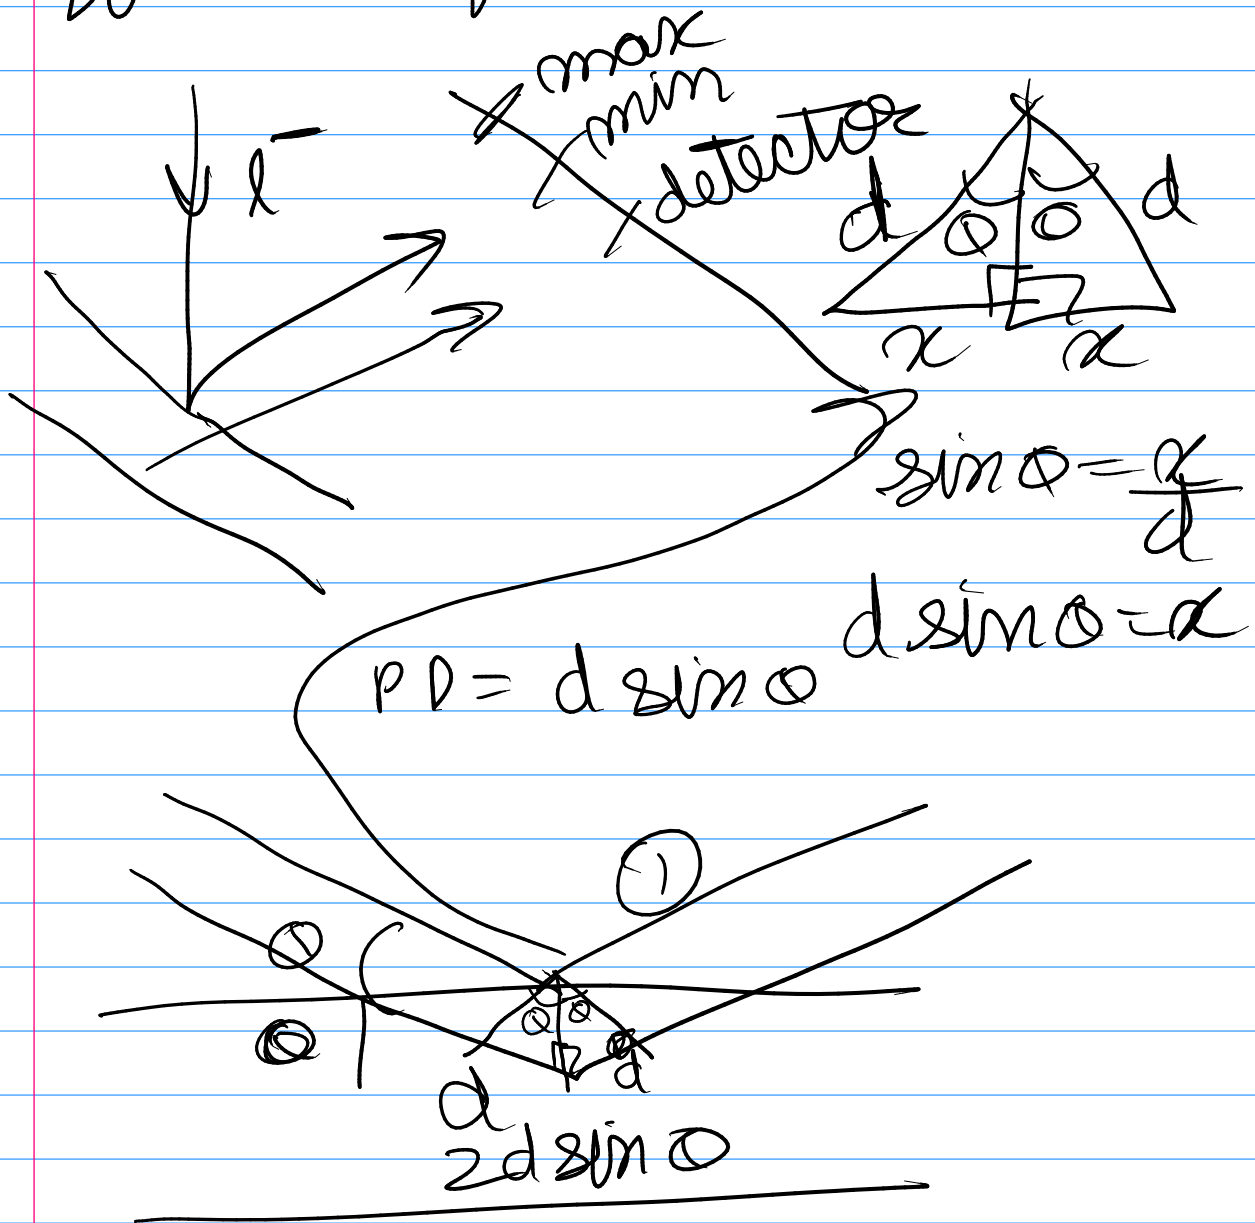 max
min
detector
e⁻
d θ θ d
x x
sin θ = x/d
d sin θ = x
PD = d sin θ
①
θ θ
d d
2d sin θ